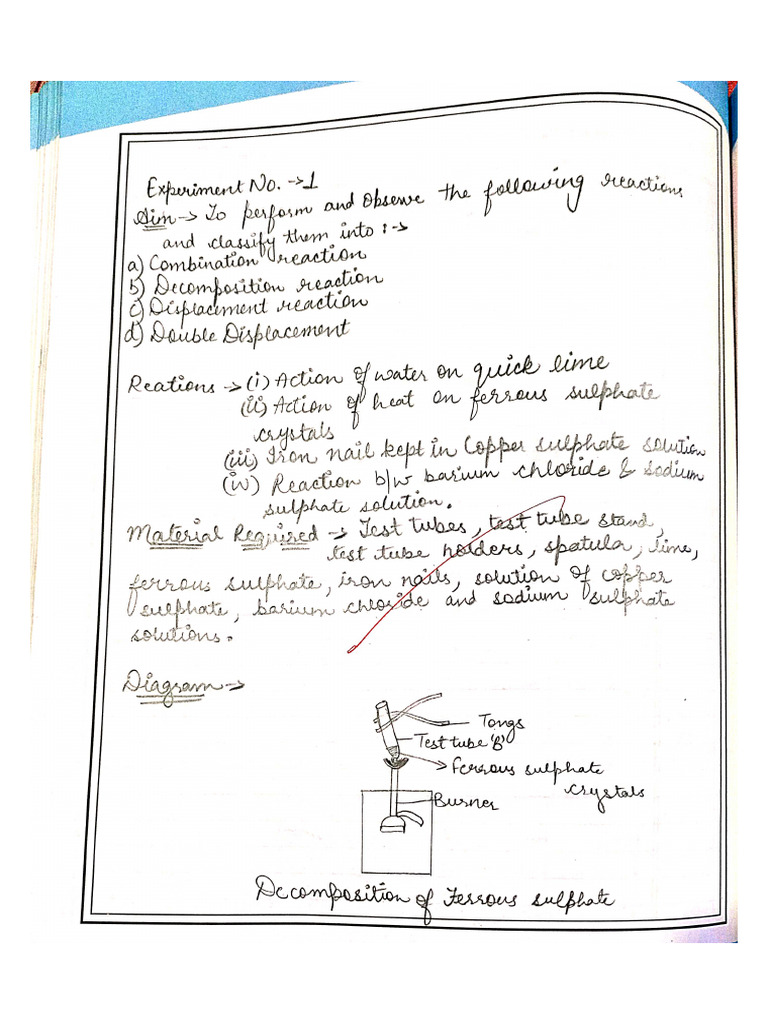 Experiment No. → 1
Aim → To perform and Observe the following reactions
and classify them into :→
a) Combination reaction
b) Decomposition reaction
c) Displacement reaction
d) Double Displacement
Reations → (i) Action of water on quick lime
(ii) Action of heat on ferrous sulphate
crystals
(iii) Iron nail kept in Copper sulphate solution
(iv) Reaction b/w barium chloride & sodium
sulphate solution.
Material Required → Test tubes, test tube stand,
test tube holders, spatula, lime,
ferrous sulphate, iron nails, solution of copper
sulphate, barium chloride and sodium sulphate
solutions.
Diagram →
Tongs
Test tube 'B'
Ferrous sulphate
crystals
Burner
Decomposition of Ferrous sulphate